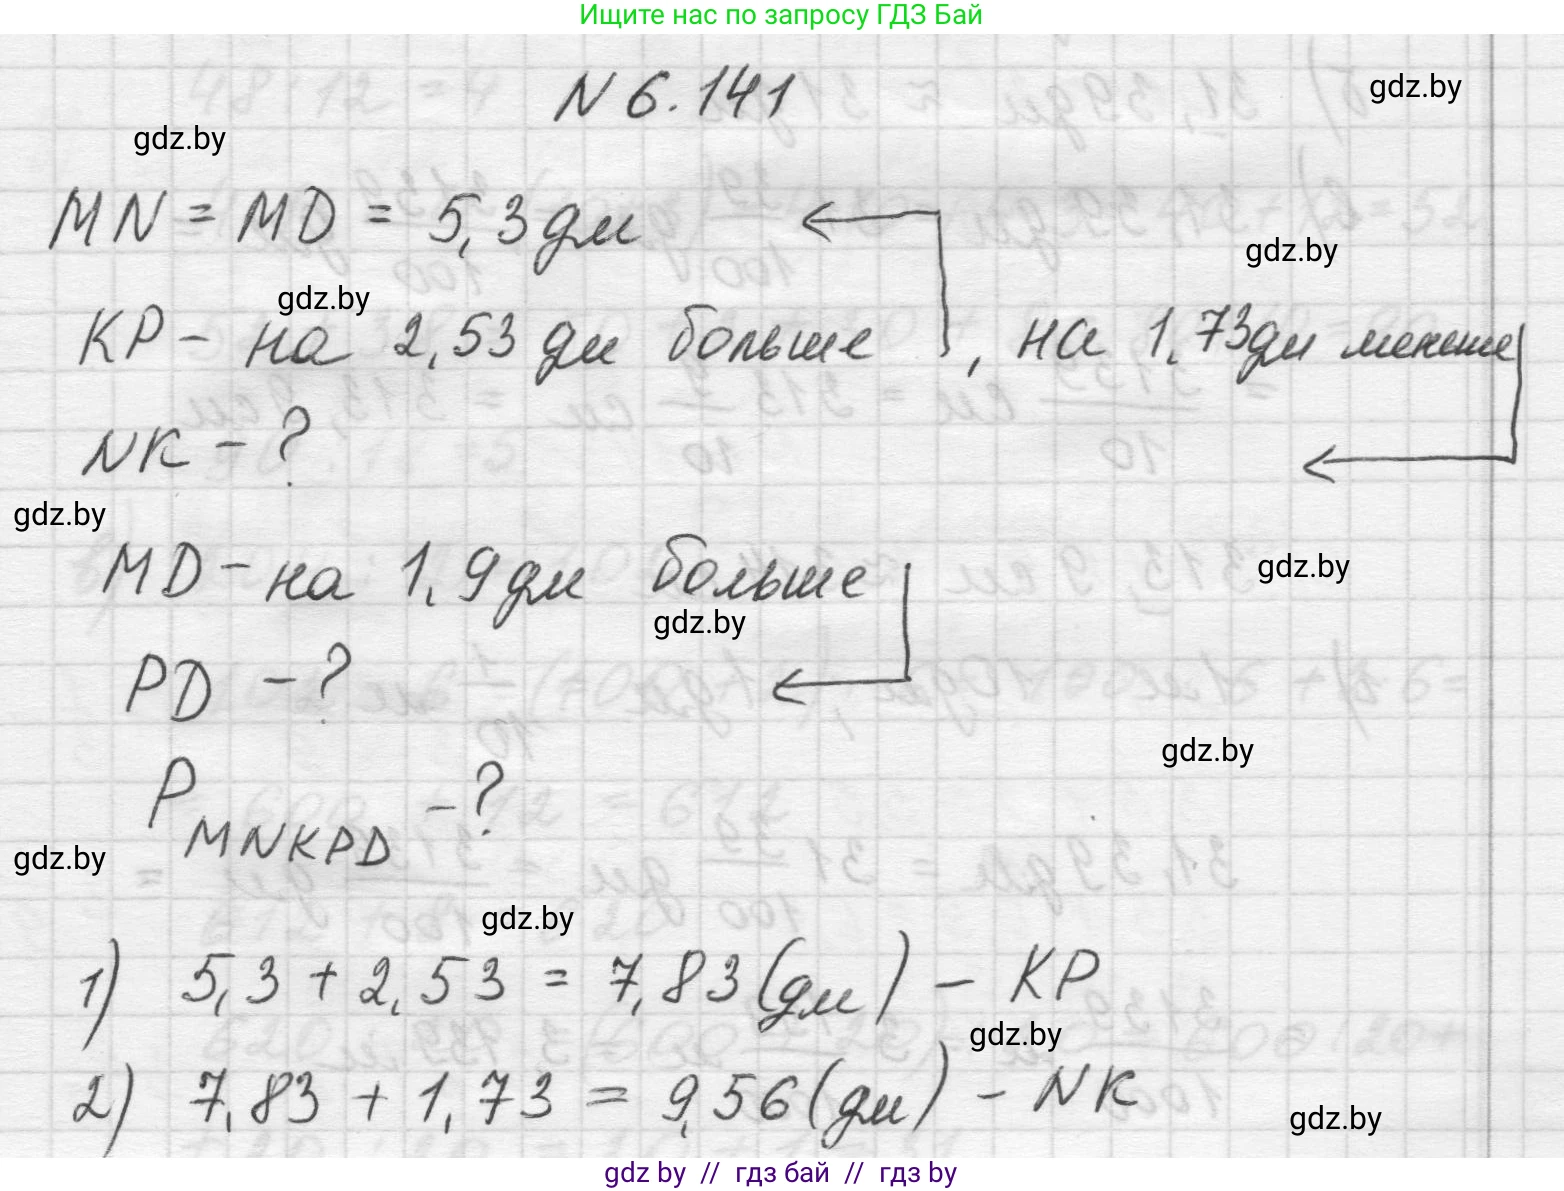 Ищите нас по запросу ГДЗ Бай
N 6.141
gdz.by
gdz.by
MN = MD = 5,3 дм
gdz.by
gdz.by
KP - на 2,53 дм больше, на 1,73дм меньше
NK - ?
gdz.by
MD - на 1,9 дм больше
gdz.by
gdz.by
PD - ?
gdz.by
P MNKPD - ?
gdz.by
gdz.by
1) 5,3 + 2,53 = 7,83 (дм) - KP
gdz.by
2) 7,83 + 1,73 = 9,56 (дм) - NK
gdz.by
gdz by // гдз бай // гдз by